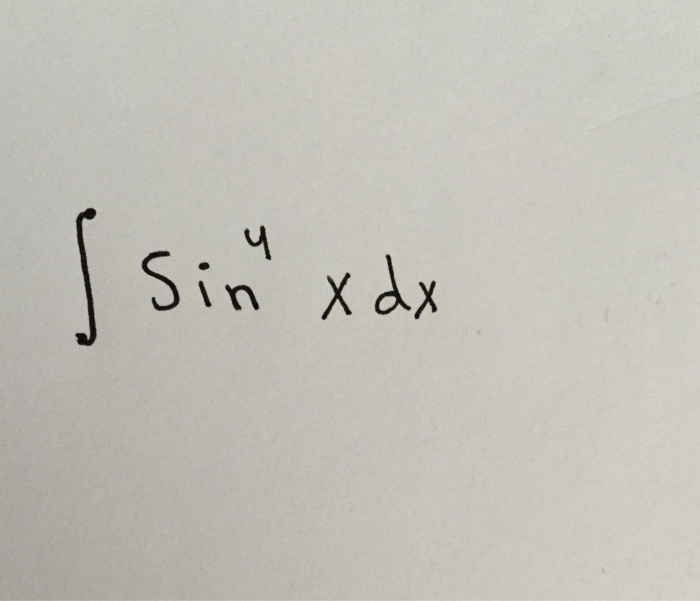 ∫ Sin⁴ x dx